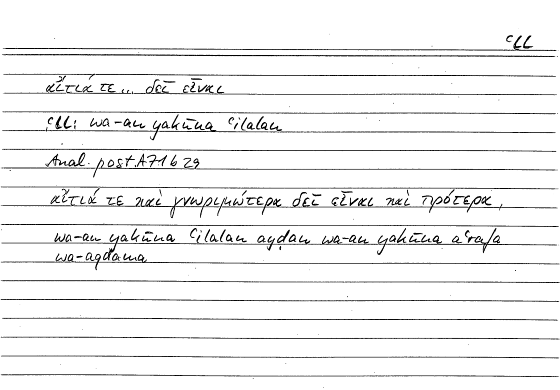 ʿLL
αἴτιά τε ... δεῖ εἶναι
ʿLL: wa-an yakūna ʿilalan
Anal. post. A71b29
αἴτιά τε καὶ γνωριμώτερα δεῖ εἶναι καὶ πρότερα,
wa-an yakūna ʿilalan ayḍan wa-an yakūna aʿrafa
wa-aqdama